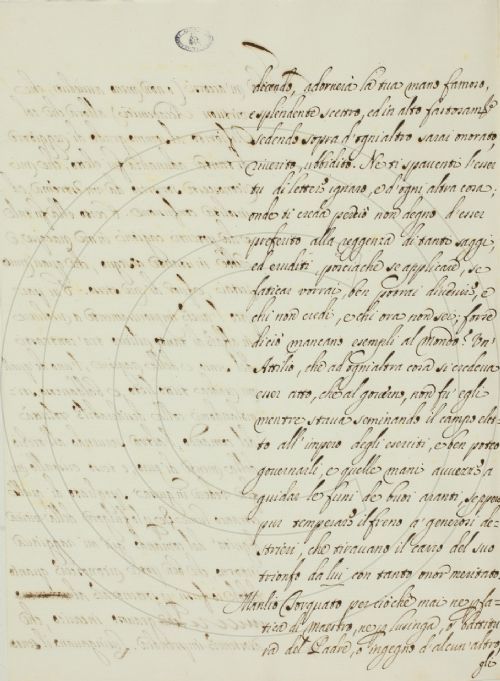 dicendo, adornerà la tua mano famoso,
e splendente scetro, ed in alto
sedendo sopra d'ogni altro sarai onorato,
riverito, ubbidito. Ne ti spaventi l'esser
tu di lettere ignaro, e d'ogni altra cosa;
onde ti creda perciò non degno d'esser
preferito alla reggenza di tanto saggi,
ed eruditi, posciache se applicar, se
faticar vorrai, ben potrai divenir, e
chi non credi, e chi ora non sei; forse
di ciò mancano esempli al mondo? Un'
Attilio, che ad ogni altra cosa si credeva
esser atto, che al governo, non fu' egli
mentre stava seminando il campo elet-
to all' impero degli eserciti, e ben poteo
governarli, e quelle mani avvezze a
guidar le funi de' buoi aranti, seppero
pur temperare il freno a' generosi de-
strieri, che tiravano il carro del suo
trionfo da lui con tanto onor meritato
Manlio Torquato perciochè mai ne p fa-
tica di Maestro, ne p lusinga, o battitu-
ra del Padre, o ingegno d'alcun altro,
gli